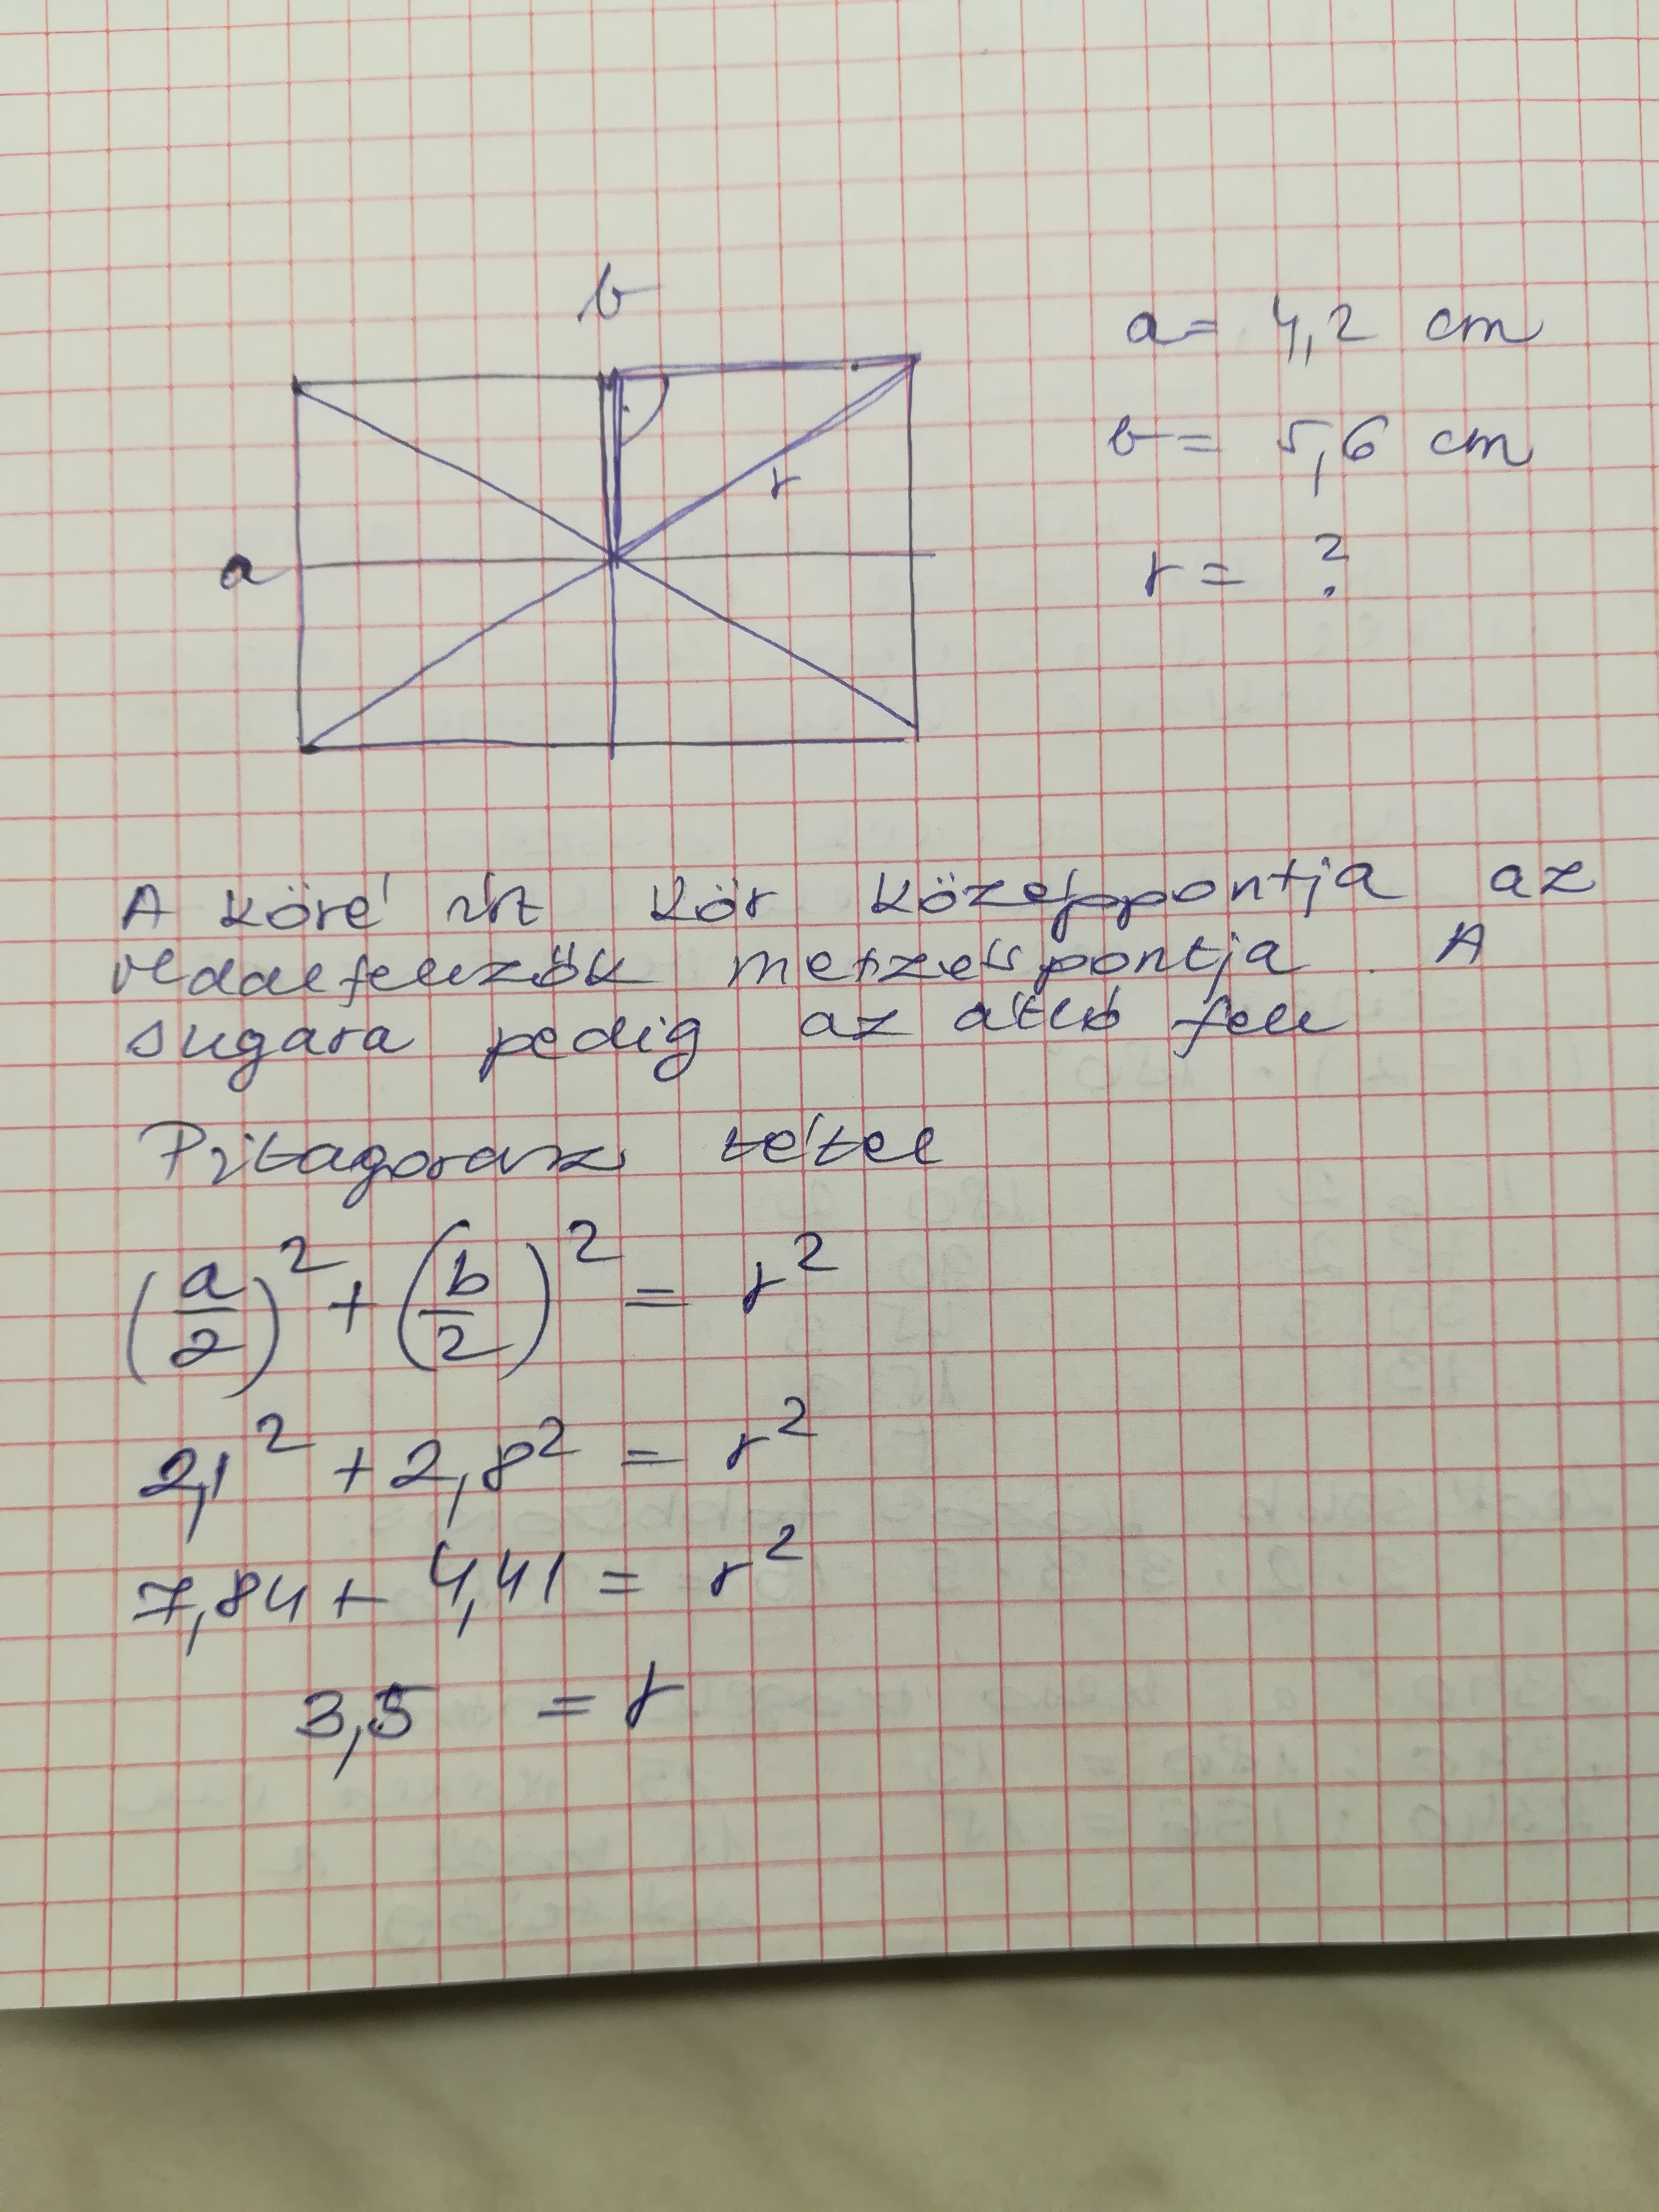 b
a = 4,2 cm
b = 5,6 cm
r
a
r = ?
A köré írt kör középpontja az
oldalfelezők metszéspontja. A
sugara pedig az átló fele
Pitagorasz tétel
(a/2)² + (b/2)² = r²
2,1² + 2,8² = r²
7,84 + 4,41 = r²
3,5 = r